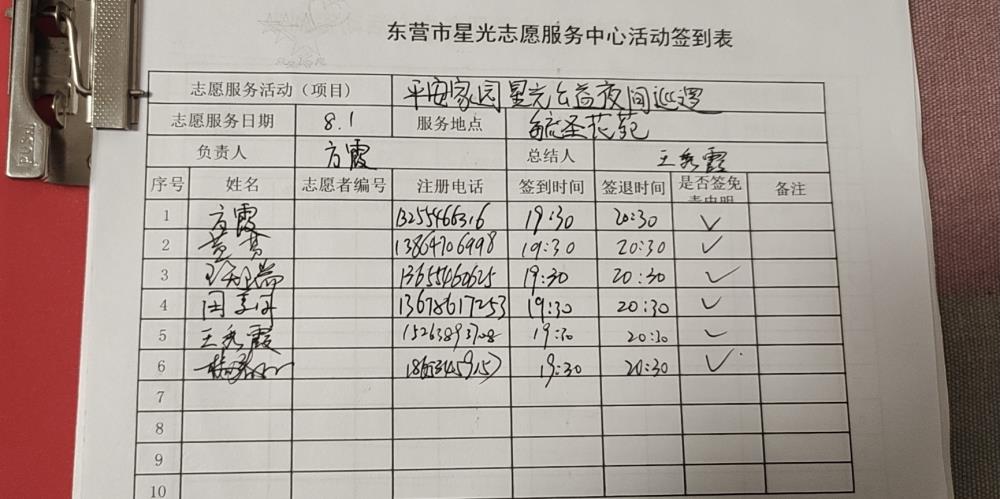 东营市星光志愿服务中心活动签到表
志愿服务活动（项目） 平安家园星光公益夜间巡逻
志愿服务日期 8.1 服务地点 毓圣花苑
负责人 方霞 总结人 王秀霞
序号 姓名 志愿者编号 注册电话 签到时间 签退时间 是否签免责申明 备注
1 方霞 13255466316 19:30 20:30 ✓
2 13864706998 19:30 20:30 ✓
3 13655460625 19:30 20:30 ✓
4 13678617253 19:30 20:30 ✓
5 王秀霞 15263893708 19:30 20:30 ✓
6 19:30 20:30 ✓
7
8
9
10
PUSH